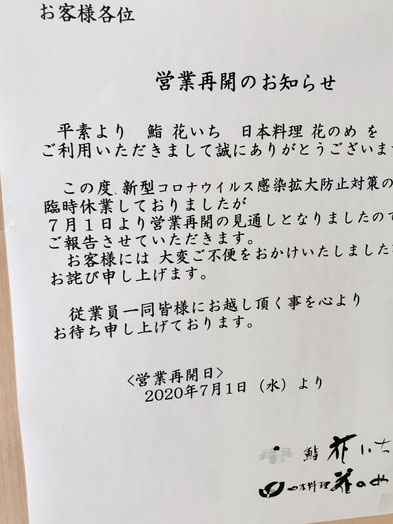 お客様各位
営業再開のお知らせ
平素より 鮨 花いち 日本料理 花のめ を
ご利用いただきまして誠にありがとうございま
この度、新型コロナウイルス感染拡大防止対策の
臨時休業しておりましたが
7月1日より営業再開の見通しとなりましたので
ご報告させていただきます。
お客様には 大変ご不便をおかけいたしました
お詫び申し上げます。
従業員一同皆様にお越し頂く事を心より
お待ち申し上げております。
<営業再開日>
2020年7月1日(水)より
鮨 花いち
日本料理 花のめ